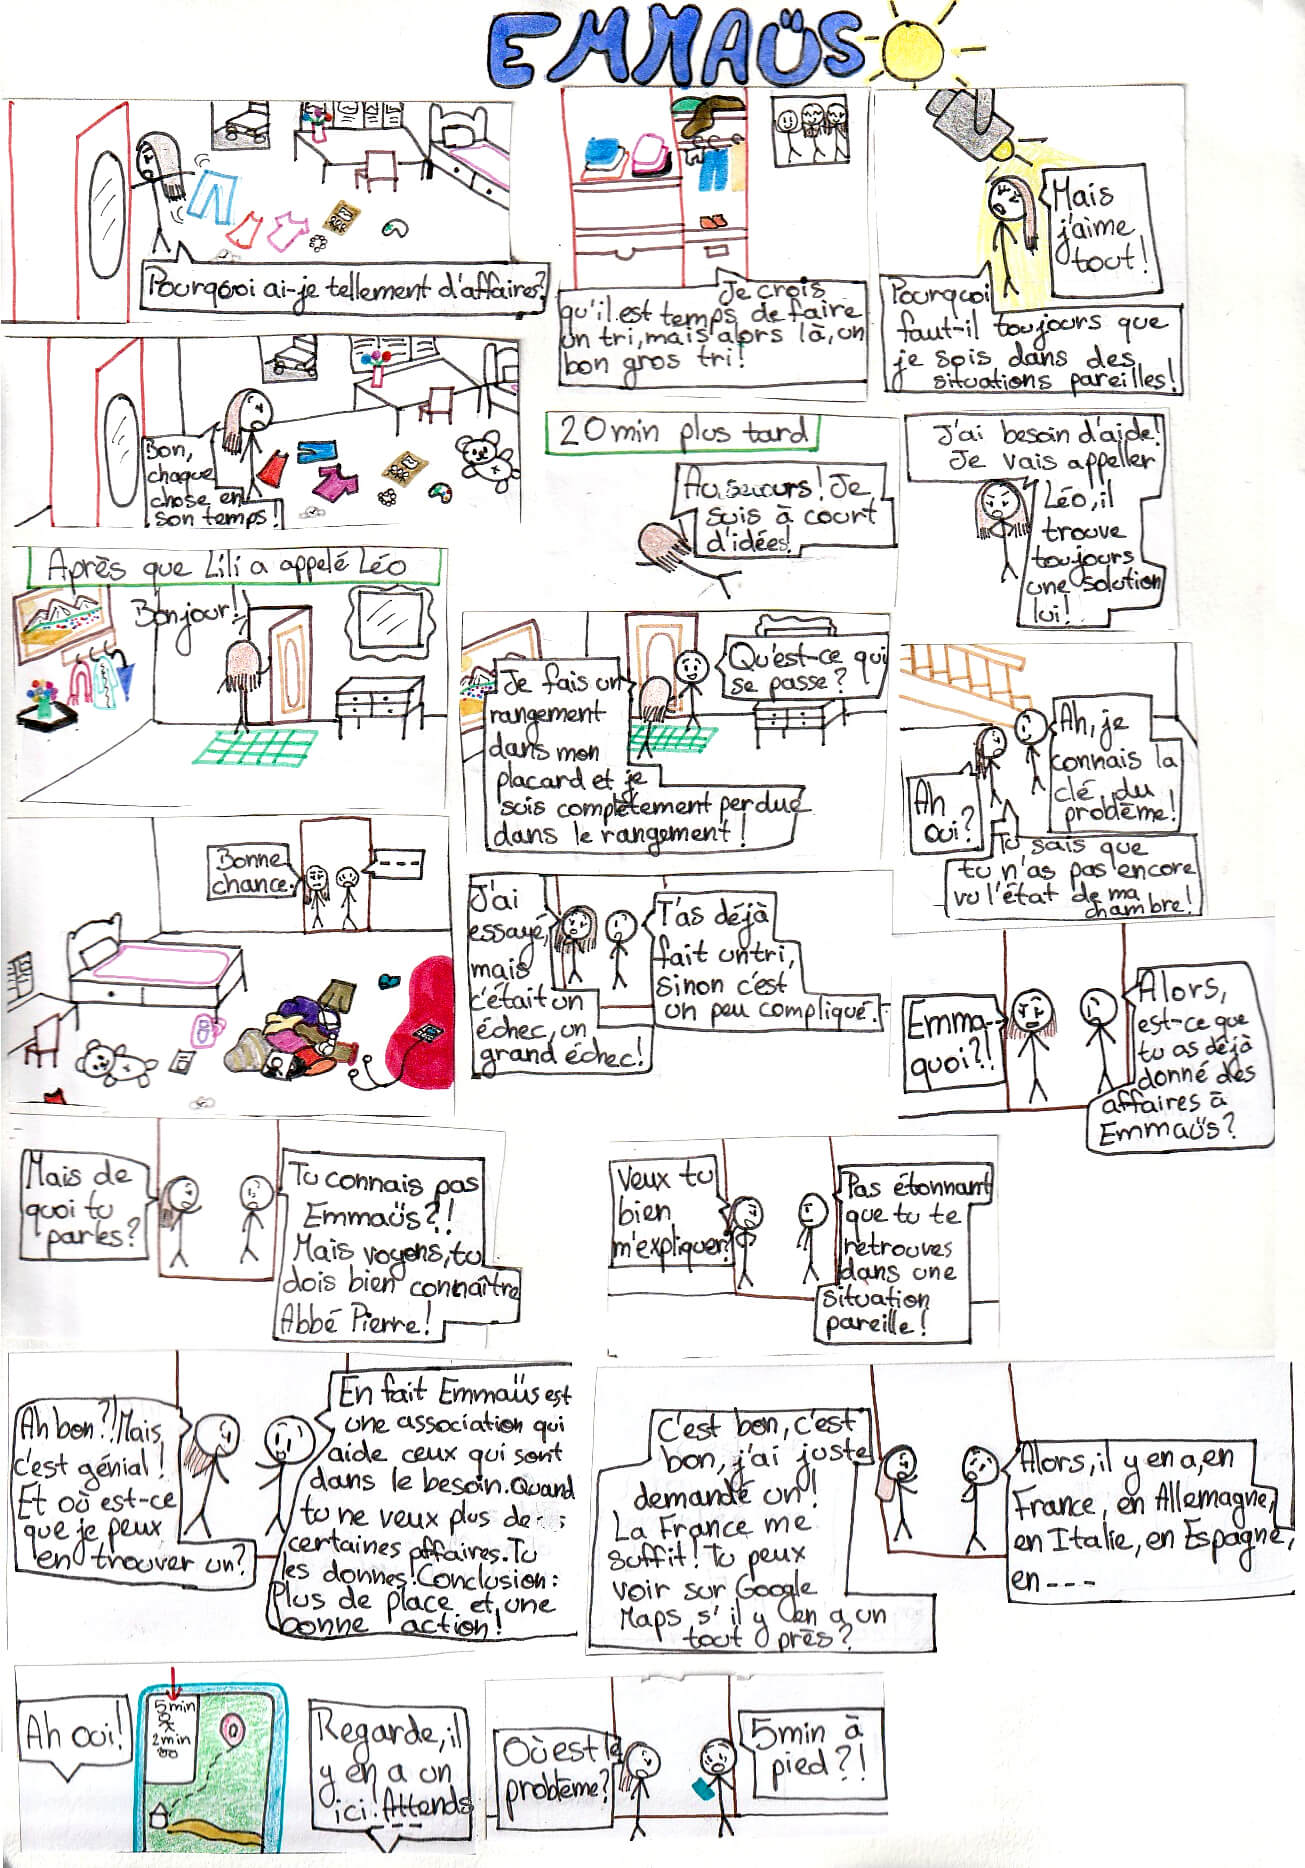 EMMAÜS
Pourquoi ai-je tellement d'affaires?
Je crois
qu'il est temps de faire
un tri, mais alors là, un
bon gros tri!
Mais
j'aime
tout!
Pourquoi
faut-il toujours que
je sois dans des
situations pareilles!
Bon,
chaque
chose en
son temps!
20min plus tard
Au secours! Je
suis à court
d'idées!
J'ai besoin d'aide!
Je vais appeller
Léo, il
trouve
toujours
une solution
lui!
Après que Lili a appelé Léo
Bonjour!
Je fais un
rangement
dans mon
placard et je
suis complètement perdue
dans le rangement!
Qu'est-ce qui
se passe?
Ah, je
connais la
clé du
probème!
Ah
oui?
Tu sais que
tu n'as pas encore
vu l'état de ma
chambre!
Bonne
chance.
----
J'ai
essayé,
mais
c'était un
échec, un
grand échec!
T'as déjà
fait un tri,
Sinon c'est
un peu compliqué.
Emma--
quoi?!
Alors,
est-ce que
tu as déjà
donné des
affaires à
Emmaüs?
Mais de
quoi tu
parles?
Tu connais pas
Emmaüs?!
Mais voyons, tu
dois bien connaître
Abbé Pierre!
Veux tu
bien
m'expliquer?
Pas étonnant
que tu te
retrouves
dans une
situation
pareille!
Ah bon?! Mais
c'est génial!
Et où est-ce
que je peux
en trouver un?
En fait Emmaüs est
une association qui
aide ceux qui sont
dans le besoin. Quand
tu ne veux plus de
certaines affaires. Tu
les donnes! Conclusion:
Plus de place et une
bonne action!
C'est bon, c'est
bon, j'ai juste
demandé un!
La France me
suffit! Tu peux
voir sur Google
Maps s'il y en a un
tout près?
Alors, il y en a, en
France, en Allemagne,
en Italie, en Espagne,
en ---
Ah oui!
5min
2min
Regarde, il
y en a un
ici! Attends
---
Où est le
probème?
5min à
pied?!